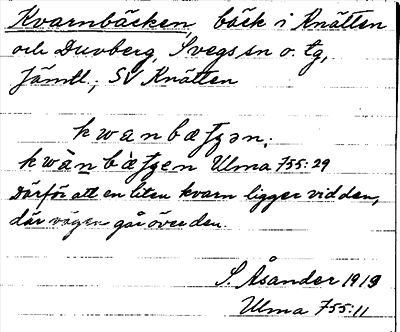 Kvarnbäcken, bäck i Knätten
och Duvberg, Svegs sn o. tg,
Jämtl.; SV Knätten
kwanbæʃʒən;
kwànbæ̀ʃʒen Ulma 755:29
Därför att en liten kvarn ligger vid den,
där vägen går över den.
S. Åsander 1919
Ulma 755:11